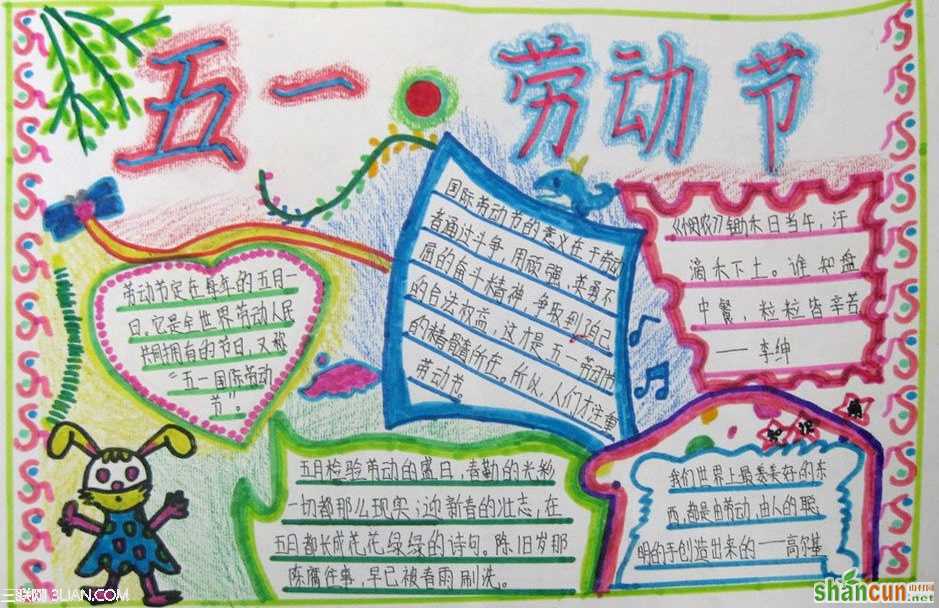 五一劳动节
劳动节定在每年的五月一
日。它是全世界劳动人民
共同拥有的节日,又称
“五一国际劳动
节”。
国际劳动节的意义在于劳动
者通过斗争,用顽强、英勇不
屈的奋斗精神,争取到了自己
的合法权益,这才是五一劳动节
的精髓所在。所以,人们才注重
劳动节。
《悯农》锄禾日当午,汗
滴禾下土。谁知盘
中餐,粒粒皆辛苦
——李绅
五月检验劳动的盛日,春勤的光彩
一切都那么现实;迎新春的壮志,在
五月都长成花花绿绿的诗句。陈旧岁那
陈腐往事,早已被春雨刷洗。
知识
我们世界上最美好的东
西,都是由劳动、由人的聪
明的手创造出来的——高尔基
三联网 3LIAN.COM
shancun 山村网
.net